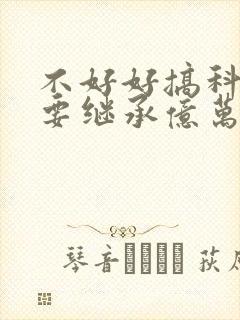 不好好搞科
要继承億萬
琴音 荻原